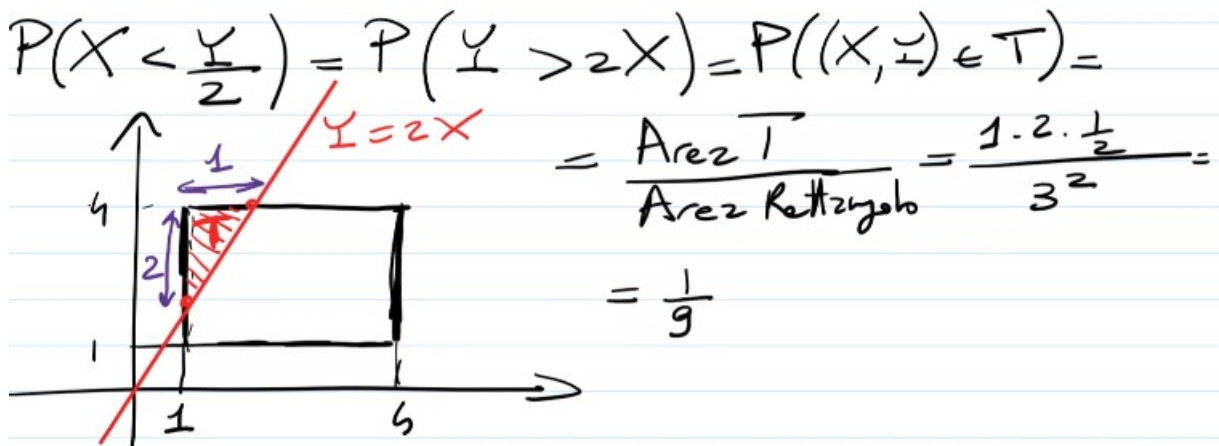 P(X < Y/2) = P(Y > 2X) = P((X,Y) ∈ T) =
Y = 2X
= Area T / Area Rettangolo = 1·2·1/2 / 3² =
1
4
T
2
= 1/9
1
1
4